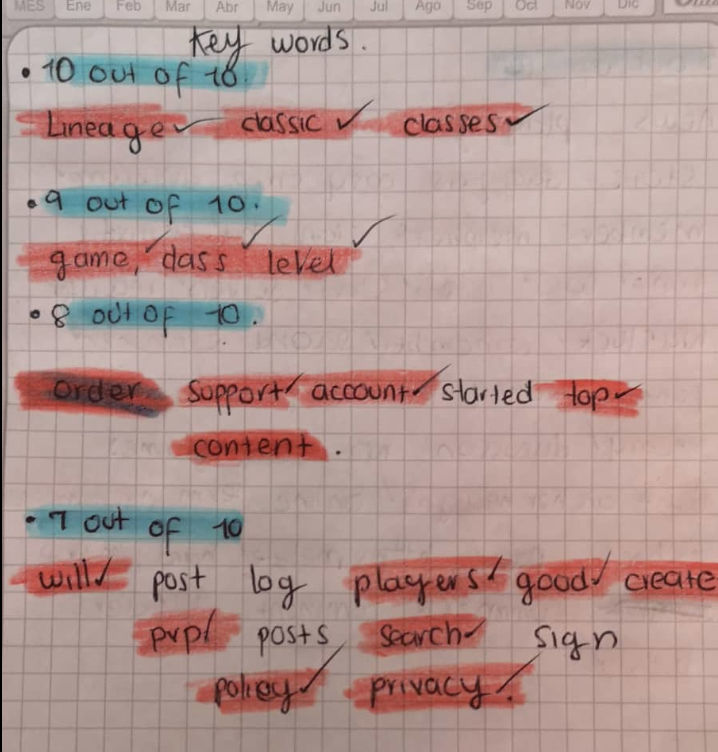 MES Ene Feb Mar Abr May Jun Jul Ago Sep Oct Nov Dic
Key words.
• 10 out of 10.
Lineage ✓ classic ✓ classes ✓
• 9 out of 10.
game, ✓ class ✓ level ✓
• 8 out of 10.
order support ✓ account ✓ started top ✓
content.
• 7 out of 10
will ✓ post log players ✓ good ✓ create
pvp ✓ posts search ✓ sign
policy ✓ privacy ✓.